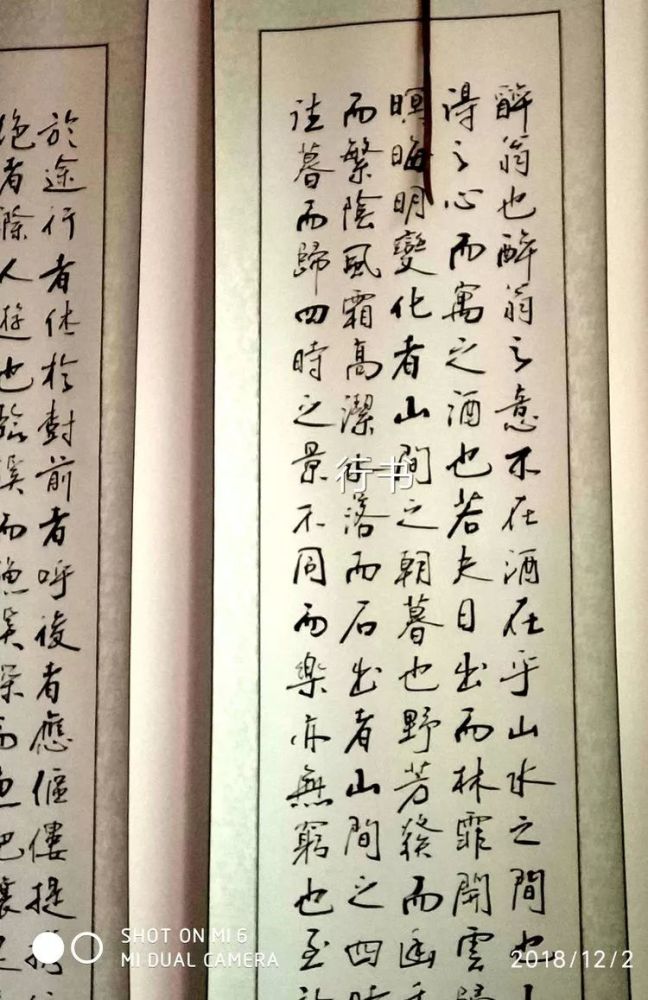 醉翁也醉翁之意不在酒在乎山水之間也
得之心而寓之酒也若夫日出而林霏開雲歸
暝晦明變化者山間之朝暮也野芳發而幽香
而繁陰風霜高潔水落而石出者山間之四時
往暮而歸四時之景不同而樂亦無窮也至於
於途行者休於樹前者呼後者應傴僂提攜
絶者滁人遊也臨溪而漁溪深而魚肥釀
行书
SHOT ON MI 6
MI DUAL CAMERA
2018/12/2